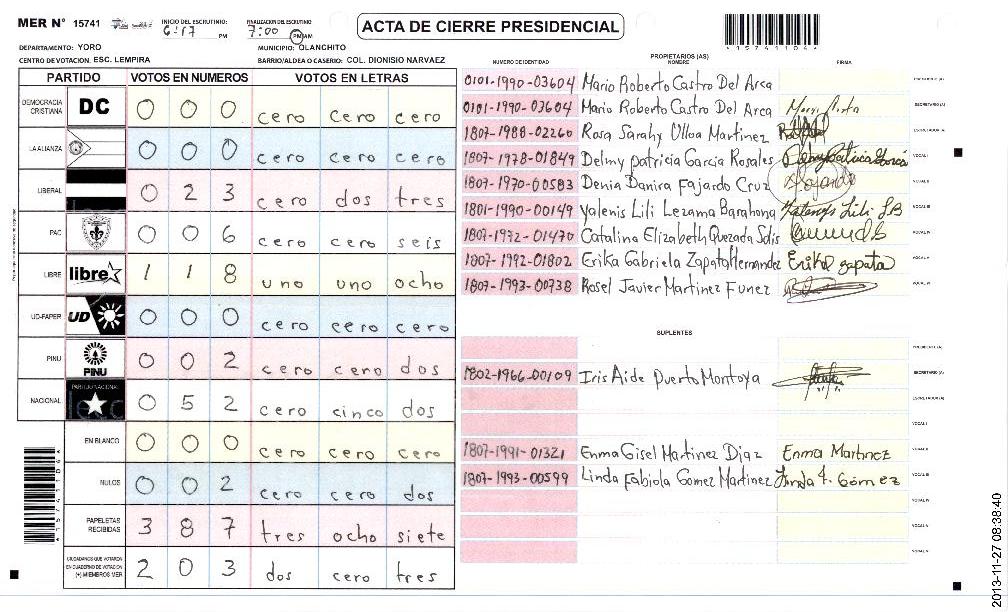 MER N° 15741 INICIO DEL ESCRUTINIO 6:17 PM FINALIZACION DEL ESCRUTINIO 7:00 PM AM
ACTA DE CIERRE PRESIDENCIAL
*15741104*
DEPARTAMENTO: YORO MUNICIPIO: OLANCHITO
CENTRO DE VOTACION: ESC. LEMPIRA BARRIO/ALDEA O CASERIO: COL. DIONISIO NARVAEZ
PARTIDO VOTOS EN NUMEROS VOTOS EN LETRAS
DEMOCRACIA CRISTIANA DC 0 0 0 cero cero cero
LA ALIANZA 0 0 0 cero cero cero
LIBERAL 0 2 3 cero dos tres
PAC 0 0 6 cero cero seis
LIBRE libre 1 1 8 uno uno ocho
UD-FAPER UD 0 0 0 cero cero cero
PINU PINU 0 0 2 cero cero dos
NACIONAL PARTIDO NACIONAL 0 5 2 cero cinco dos
EN BLANCO 0 0 0 cero cero cero
NULOS 0 0 2 cero cero dos
PAPELETAS RECIBIDAS 3 8 7 tres ocho siete
CIUDADANOS QUE VOTARON EN CUADERNO DE VOTACION (+) MIEMBROS MER 2 0 3 dos cero tres
PROPIETARIOS (AS)
NUMERO DE IDENTIDAD NOMBRE FIRMA
0101-1990-03604 Mario Roberto Castro Del Arca PRESIDENTE (A)
0101-1990-03604 Mario Roberto Castro Del Arca SECRETARIO (A)
1807-1988-02260 Rosa Sarahy Ulloa Martinez ESCRUTADOR (A)
1807-1978-01849 Delmy patricia Garcia Rosales VOCAL I
1807-1970-00583 Denia Danira Fajardo Cruz Fajardo VOCAL II
1801-1990-00149 Yalenis Lili Lezama Barahona Yalenys Lili L B VOCAL III
1807-1972-01470 Catalina Elizabeth Quezada Solis VOCAL IV
1807-1992-01802 Erika Gabriela Zapata Hernandez Erika zapata VOCAL V
1807-1993-00738 Rosel Javier Martinez Funez VOCAL VI
SUPLENTES
PRESIDENTE (A)
1802-1966-00109 Iris Aide Puerto Montoya SECRETARIO (A)
ESCRUTADOR (A)
VOCAL I
1807-1991-01321 Enma Gisel Martinez Diaz Enma Martinez VOCAL II
1807-1993-00599 Linda Fabiola Gomez Martinez Linda F. Gómez VOCAL III
VOCAL IV
VOCAL V
VOCAL VI
2013-11-27 08:38:40